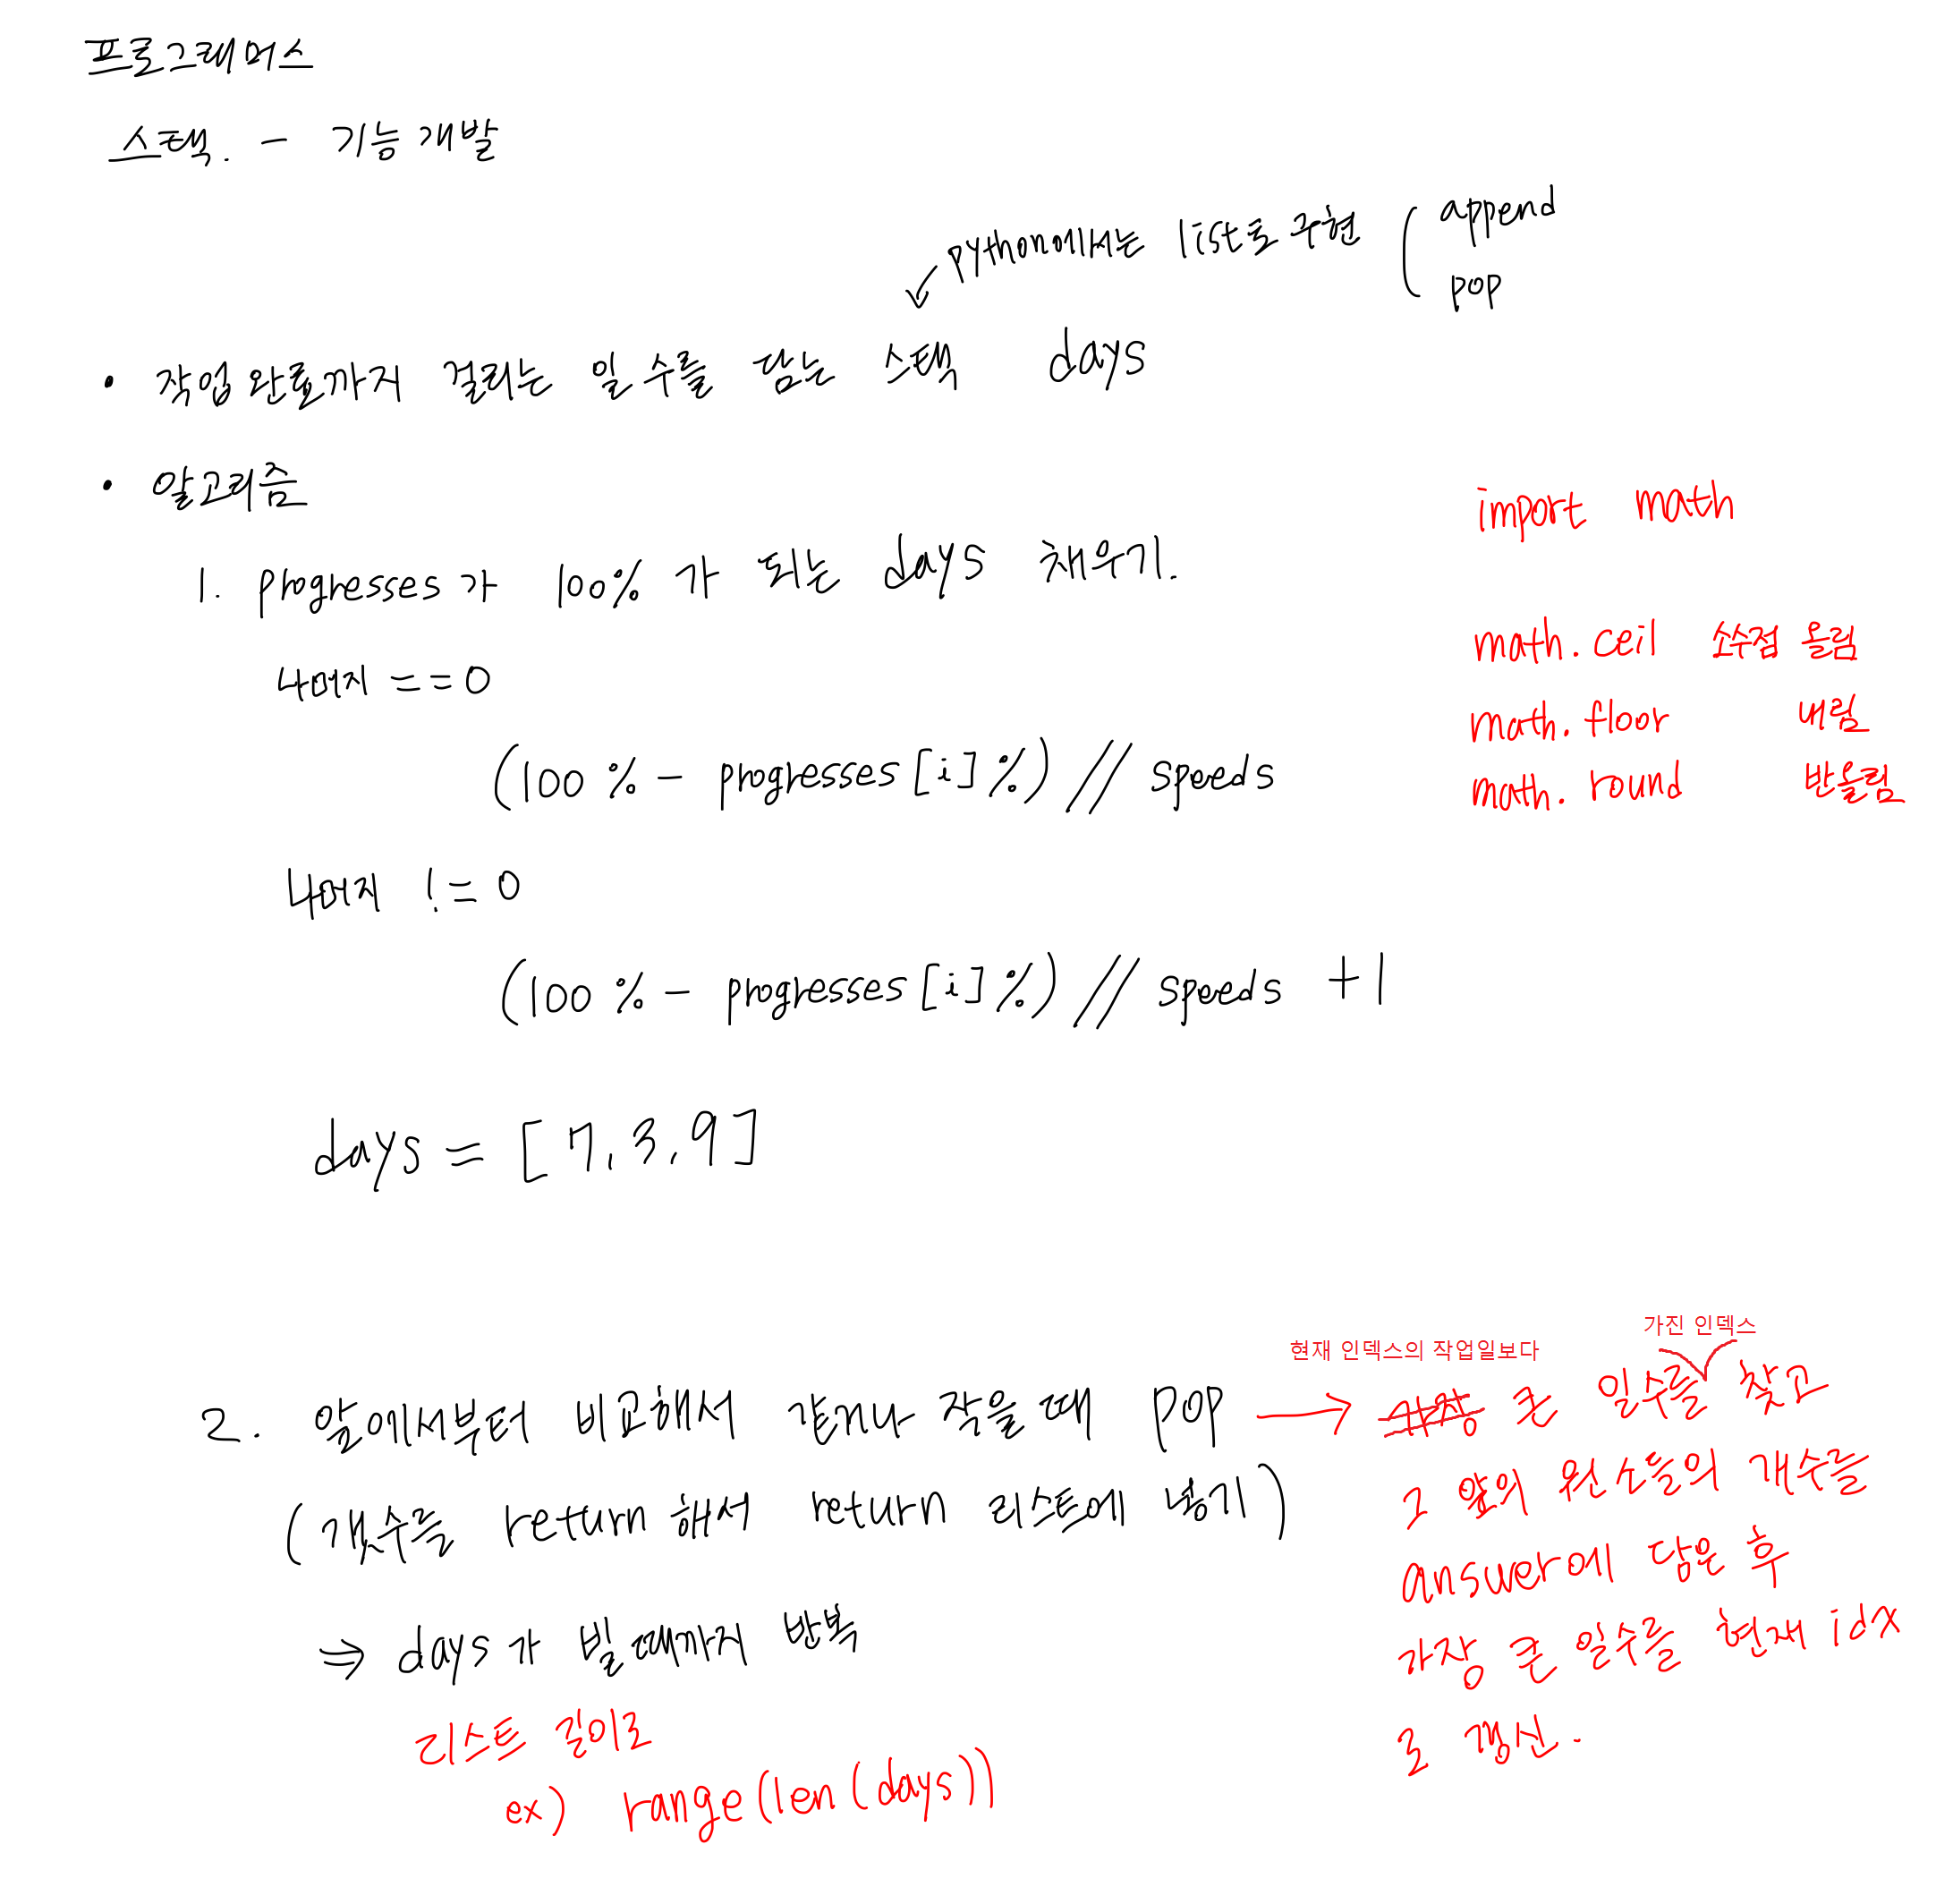 프로그래머스
스택. - 기능개발
python에서는 list로 구현 ( append
pop
• 작업완료까지 걸리는 일수를 담는 스택 days
• 알고리즘
import math
1. progresses가 100%가 되는 days 채우기.
math.ceil 소수점 올림
나머지 == 0
math.floor 내림
(100% - progresses[i]%) // speeds
math.round 반올림
나머지 != 0
(100% - progresses[i]%) // speeds +1
days = [7, 3, 9]
가진 인덱스
현재 인덱스의 작업일보다
2. 앞에서부터 비교해서 같거나 작을 때 pop → 가장 큰 일수를 찾고
(개수를 return 해서 return 리스트에 넣기)
그 앞의 원소들의 개수를
answer에 담은 후
⇒ days가 빌 때까지 반복
가장 큰 일수를 현재 idx
로 갱신.
리스트 길이로
ex) range(len(days))